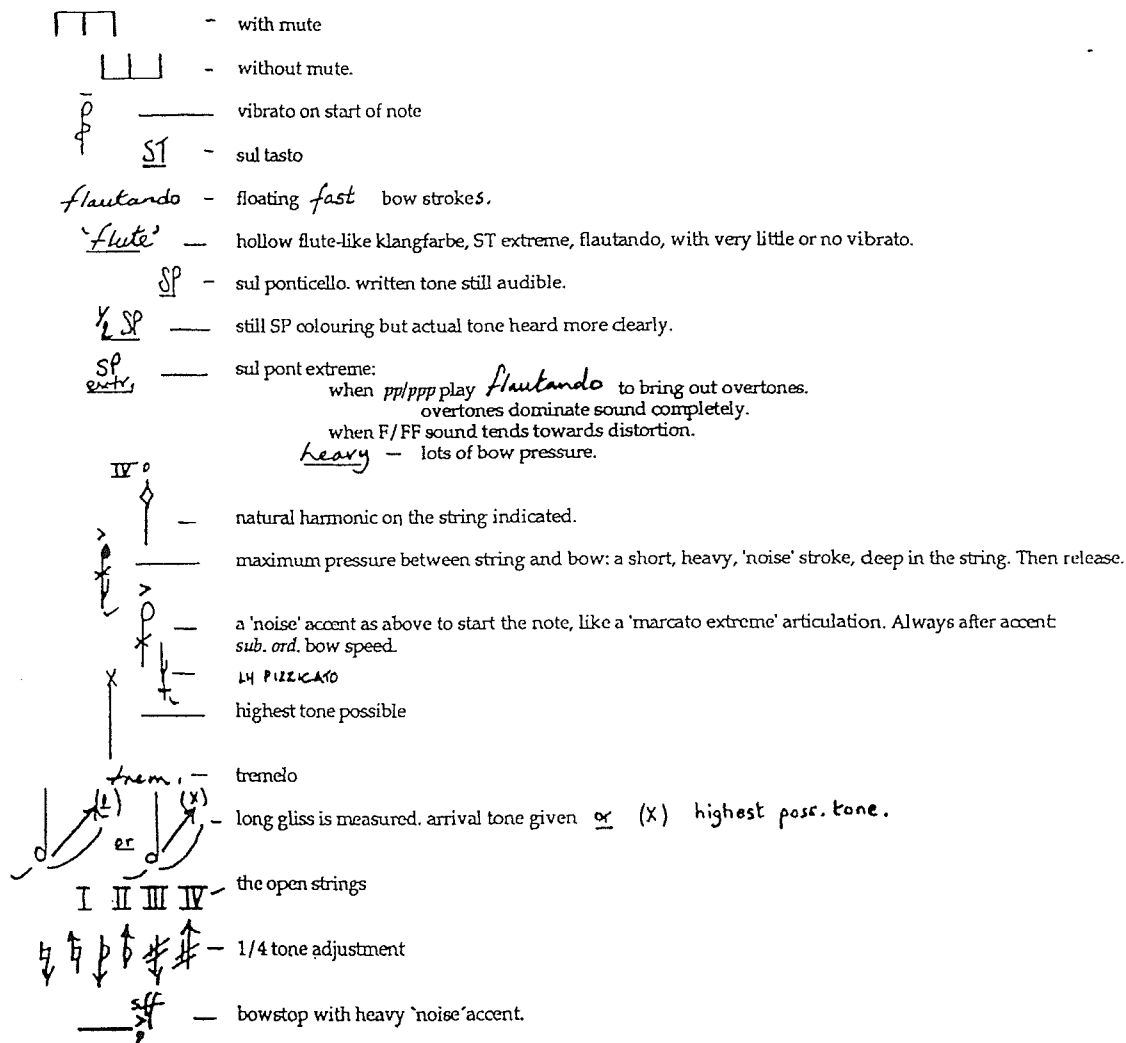 - with mute
- without mute.
vibrato on start of note
ST - sul tasto
flautando - floating fast bow strokes.
'flute' — hollow flute-like klangfarbe, ST extreme, flautando, with very little or no vibrato.
SP - sul ponticello. written tone still audible.
1/2 SP — still SP colouring but actual tone heard more clearly.
SP extr. — sul pont extreme:
when pp/ppp play flautando to bring out overtones.
overtones dominate sound completely.
when F/FF sound tends towards distortion.
heavy — lots of bow pressure.
IV
— natural harmonic on the string indicated.
maximum pressure between string and bow: a short, heavy, 'noise' stroke, deep in the string. Then release.
— a 'noise' accent as above to start the note, like a 'marcato extreme' articulation. Always after accent
sub. ord. bow speed.
— LH PIZZICATO
highest tone possible
trem. — tremelo
or - long gliss is measured. arrival tone given or (X) highest poss. tone.
I II III IV - the open strings
— 1/4 tone adjustment
sff — bowstop with heavy 'noise' accent.